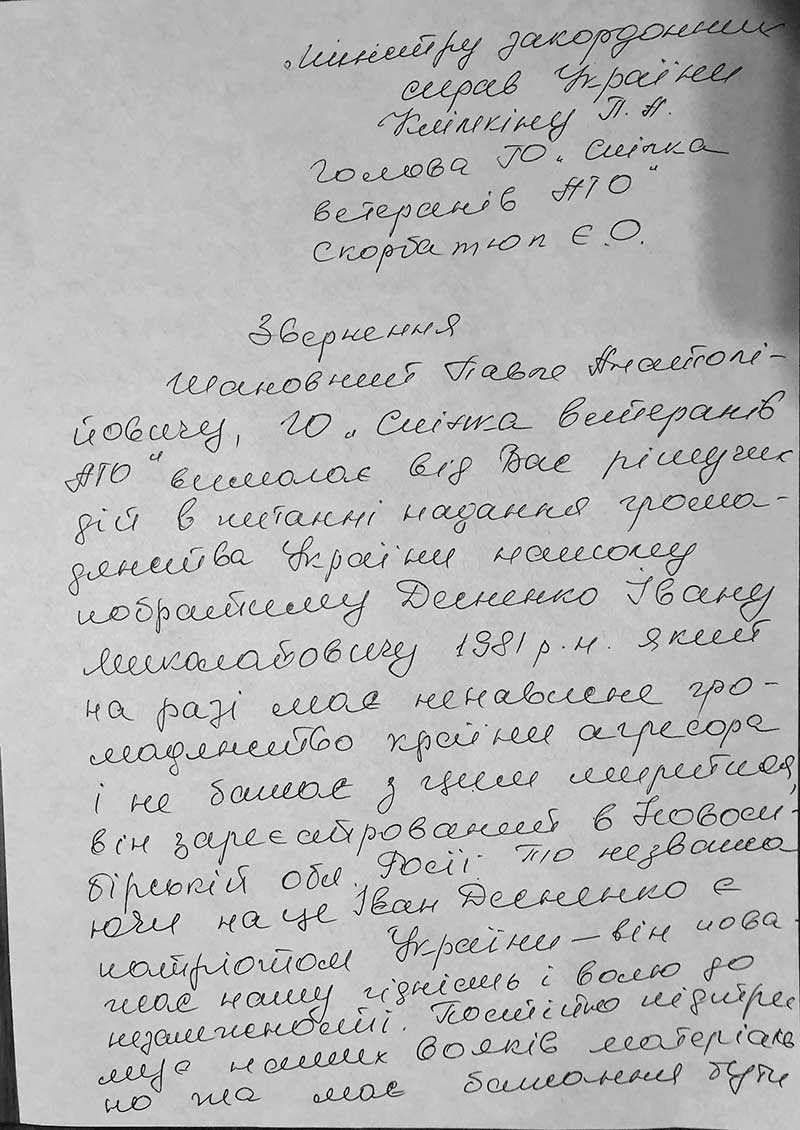 Міністру закордонних
справ України
Клімкіну П.А.
Голова ГО „Спілка
ветеранів АТО"
Скорбатюп Є.О.
Звернення
Шановний Павле Анатолі-
йовичу, ГО „Спілка ветеранів
АТО" вимагає від Вас рішучих
дій в питанні надання грома-
дянства України нашому
побратиму Десненко Івану
Миколайовичу 1981 р.н. який
на разі має ненависне гро-
мадянство країни агресора
і не бажає з цим миритися,
він зареєстрований в Новоси-
бірській обл. Росії. То незважа
ючи на це Іван Десненко є
патріотом України – він пова-
жає нашу гідність і волю до
незалежності. Постійно підтри
мує наших вояків матеріаль
но та має бажання бути